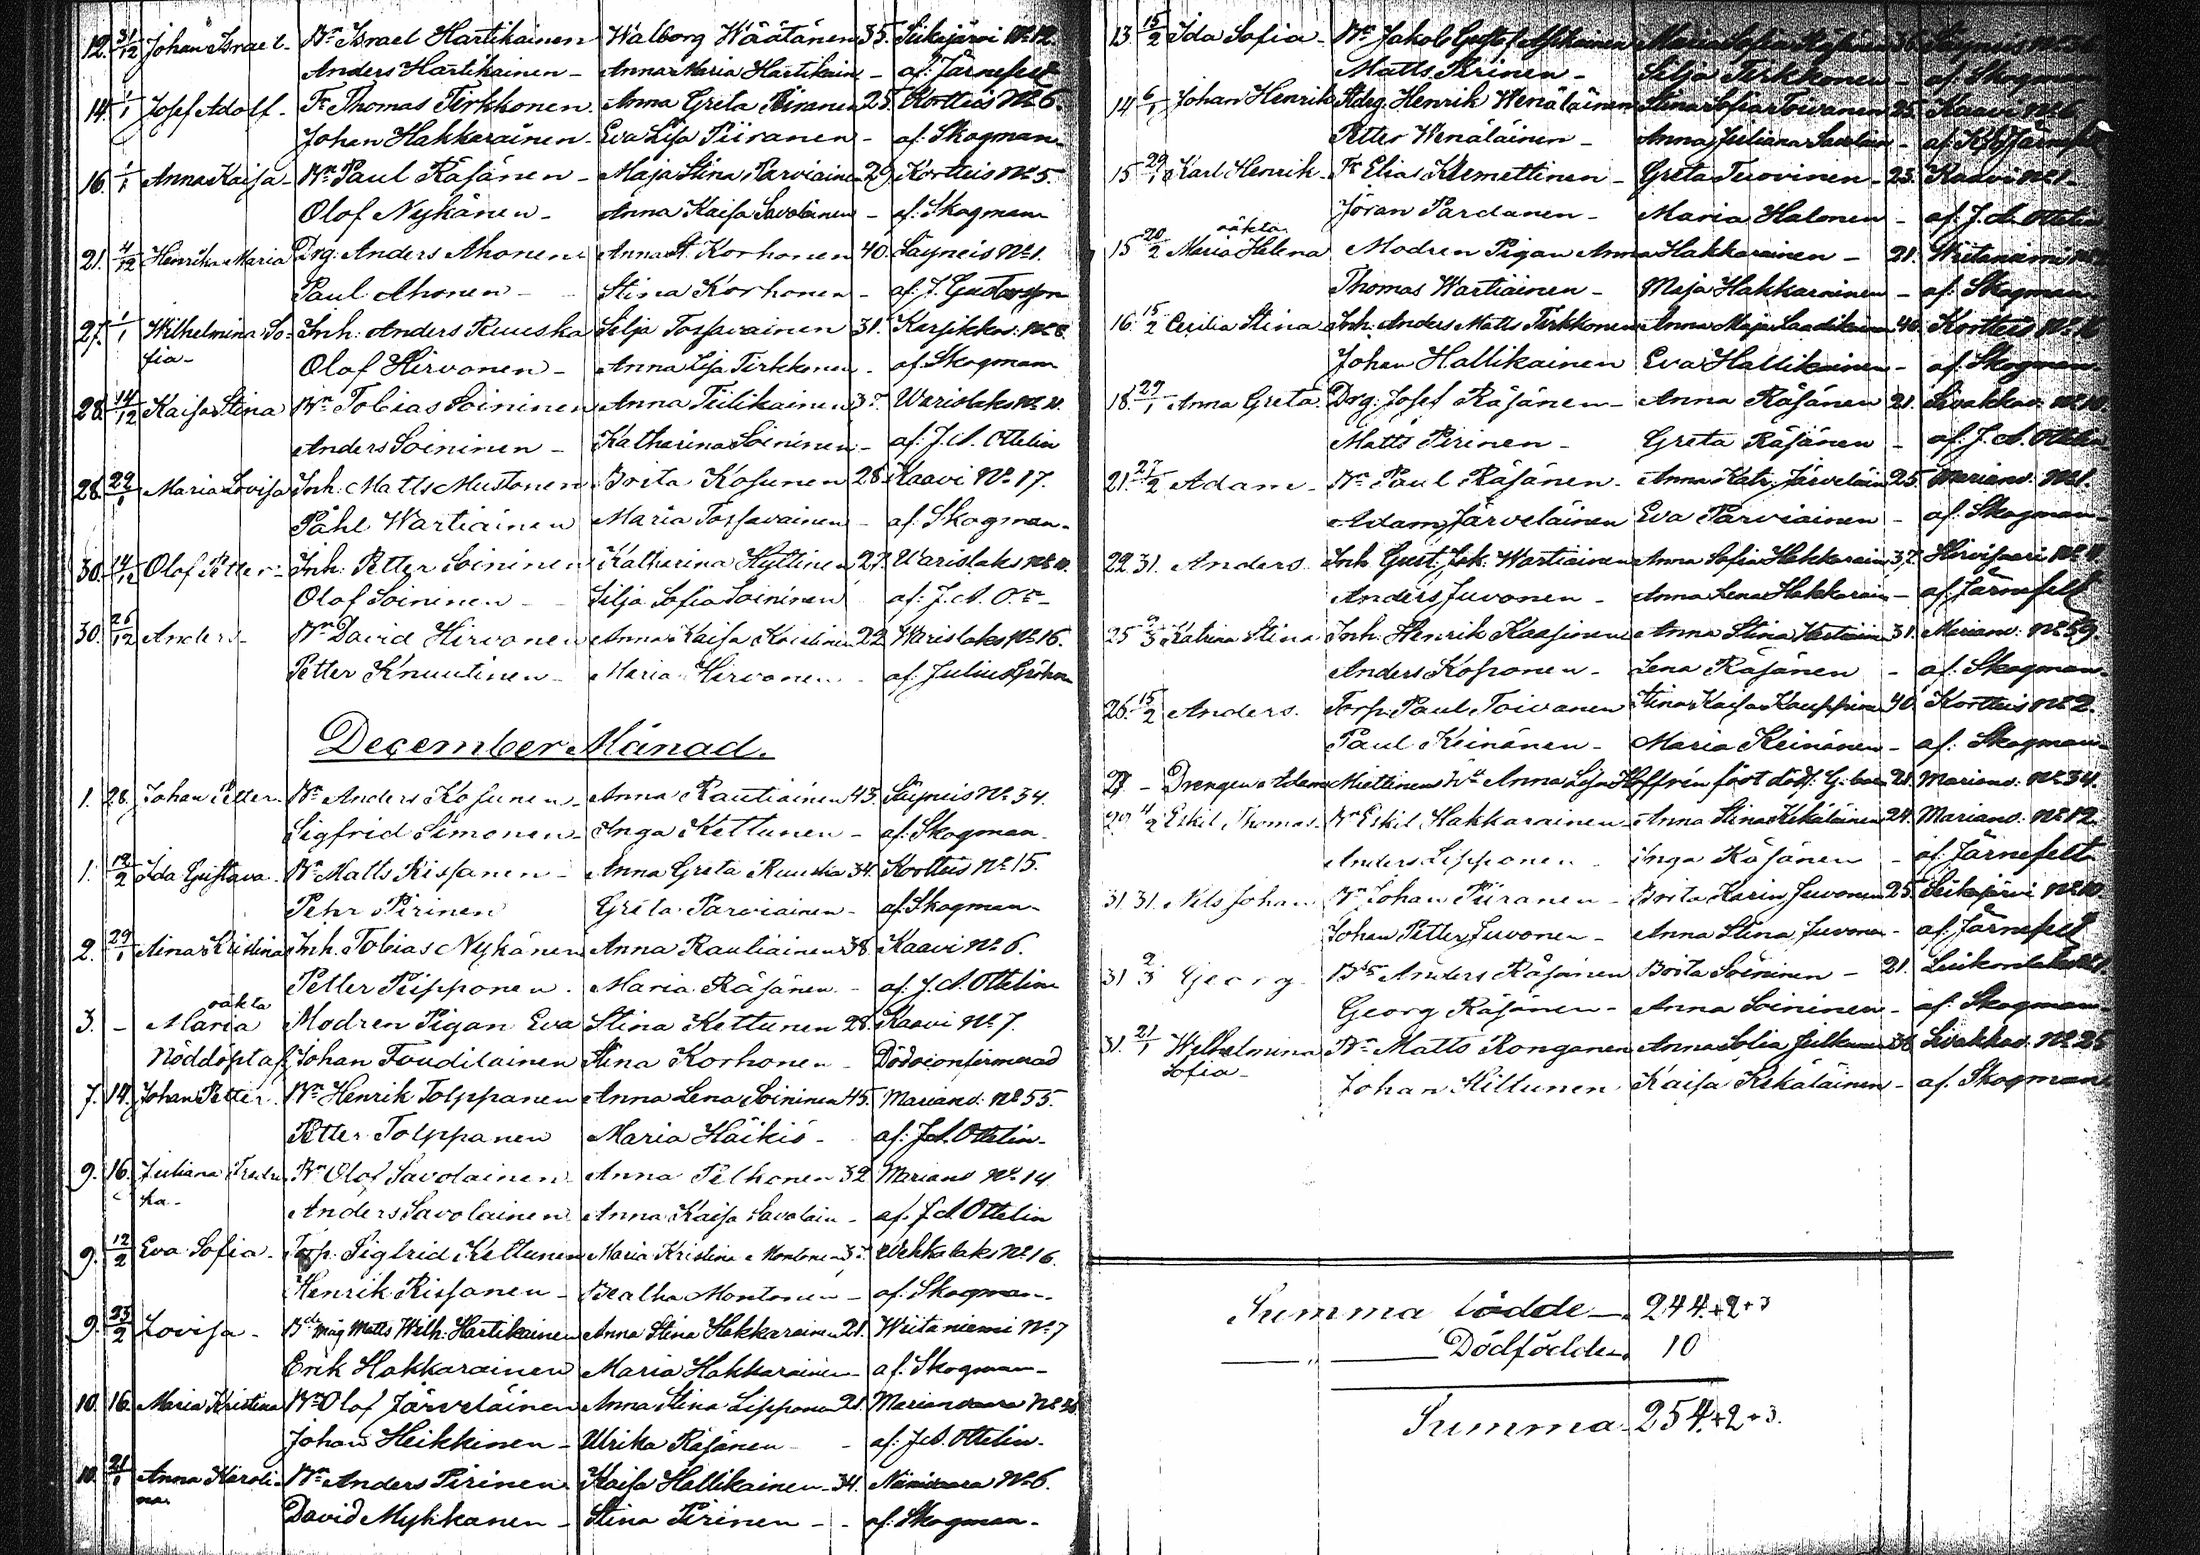 12. 31/12 Johan Israel. Bn Israel Hartikainen Walborg Wäätänen 35. Siikajärvi No 12.
Anders Hartikainen - Anna Maria Hartikain - af: Järnefelt
14. 1/1 Josef Adolf. Fr Thomas Tirkkonen Anna Greta Piiranen 25. Kortteis No 6.
Johan Hakkarainen. Eva Lisa Piiranen - af: Skogman
16. 1/1 Anna Kaisa - Bn Paul Räsänen - Maja Stina Parviainen 29. Kortteis No 5.
Olof Nykänen - Anna Kaisa Savolainen - af: Skogman
21. 4/12 Henrika Maria Drg. Anders Ahonen Anna Korhonen 40. Säyneis No 1.
Paul Ahonen - Stina Korhonen - af: J. Gustafson
27. 1/1 Wilhelmina So- Inh: Anders Ruuska Silja Tossavainen 31. Karsikko: No 8.
fia - Olof Hirvonen - Anna Lisa Tirkkonen - af: Skogman
28. 14/12 Kaisa Stina Bn Tobias Soininen Anna Tiilikainen Warislaks No
Anders Soininen - Katharina Soininen - af: J. A. Ottelin
28. 22/1 Maria Lovisa Inh: Matts Mustonen Brita Kosunen 28. Kaavi No 17.
Påhl Wartiainen Maria Tossavainen - af: Skogman -
30. 14/12 Olof Petter - Inh: Petter Soininen Katharina Hyttinen 27. Warislaks No 10.
Olof Soininen - Silja Sofia Soininen af: J. A. O.
30. 26/12 Anders - Bn David Hirvonen Anna Kaisa 22. Warislaks No 16.
Petter Knuutinen - Maria Hirvonen - af: Julius
December Månad.
1. 28. Johan Petter Bn Anders Kosunen - Anna Rautiainen 43. Säyneis No 34.
Sigfrid Simonen - Inga Kettunen - af: Skogman.
1. 12/2 Ida Gustava. Bn Matts Rissanen - Anna Greta Ruuska 34. Kortteis No 15.
Pehr Pirinen Greta Parviainen - af: Skogman -
2. 29/1 Aina Kristina Inh. Tobias Nykänen Anna Rautiainen 38. Kaavi No 6.
Petter Piipponen. Maria Räsänen - af: J. A. Ottelin
oäkta
3. - Maria Modren Pigan Eva Stina Kettunen 28. Kaavi No 7.
Nöddöpt af Johan Toudilainen Stina Korhonen - Död oconfirmerad
7. 14. Johan Petter. Bn Henrik Tolppanen Anna Lena Soininen 45. Mariand: No 55.
Petter Tolppanen Maria Häikiö - af: J. A. Ottelin -
9. 16. Juliana Fredri Bn Olof Savolainen - Anna Pelkonen 32 Mariand No 14
ka - Anders Savolainen Anna Kaisa Savolain - af: J. A. Ottelin
9. 12/2 Eva Sofia - Torp. Sigfrid Kettunen Maria Kristina Montonen Wehkalaks No 16.
Henrik Rissanen - Beatha Montonen - af: Skogman -
9. 23/2 Lovisa - måg Matts Wilh: Hartikainen Anna Stina Hakkarainen 21. Wiitaniemi No 7
Erik Hakkarainen Maria Hakkarainen - af: Skogman -
10. 16. Maria Kristina Bn Olof Järveläinen Anna Stina Lipponen 21. Mariandvaara No
Johan Heikkinen - Ulrika Räsänen - af: J. A. Ottelin.
10. 21/1 Anna Karoli- Bn Anders Pirinen Kaisa Hallikainen - 34. Niinivaara No 6.
na. David Mykkänen - Stina Pirinen - - af: Skogman -
13. 15/2 Ida Sofia - Bn Jakob Gustaf Asikainen Maria Sofia Räsänen
Matts Pirinen - Silja Tirkkonen - af Skogman
14 6/1 Johan Henrik Adrg. Henrik Wenäläinen Stina Sofia Toivanen 25. Kaavi No 6
Petter Wenäläinen - Anna Juliana Savolain - af Järnefelt
15 29/1 Karl Henrik - Fr Elias Klemettinen - Greta Tuovinen - 23. Kaavi No 1 -
Jöran Pardanen - Maria Halonen - af: J. A. Ottelin
oäkta
15 20/2 Maria Helena Modren Pigan Anna Hakkarainen - 21. Wiitaniemi
Thomas Wartiainen - Maja Hakkarainen - af: Skogman
16. 15/2 Cecilia Stina Inh. Anders Matts Tirkkonen Anna Maja 40. Kortteis No
Johan Hallikainen Eva Hallikainen - af: Skogman
18. 29/1 Anna Greta Drg. Josef Räsänen - Anna Räsänen 21. Sivakkav: No 10.
Matts Pirinen - Greta Räsänen - af: J. A. Ottelin
21. 27/2 Adam - Bn Paul Räsänen. Anna Katr: Järveläin 25. Mariand: No 1.
Adam Järveläinen Eva Parviainen - af: Skogman -
22. 31. Anders. Inh Gust: Jak: Wartiainen Anna Sofia Hakkarain 37. Hirvisaari No 4.
Anders Juvonen - Anna Lena Hakkarain - af Järnefelt
25 9/3 Katrina Stina Inh: Henrik Kaasinen Anna Stina 31. Mariand: No 59.
Anders Kosonen - Lena Räsänen - af: Skogman -
26. 15/2 Anders. Torp. Paul Toivanen Stina Kaisa Kauppinen 40. Kortteis No 2.
Paul Keinänen - Maria Keinänen - af: Skogman -
27 - Drengen Adam Miettinen Anna Lisa Hoffrén födt dödf. G: barn 21. Mariand: No 34.
29 11/2 Eskil Thomas - Bn Eskil Hakkarainen - Anna Stina Keskäläinen 24. Mariand: No 12
Anders Lipponen - Inga Räsänen - af: Järnefelt
31. 31. Nils Johan Bn Johan Piiranen - Brita Karin Juvonen 25. Siikajärvi No 10.
Johan Petter Juvonen - Anna Stina Juvonen - af: Järnefelt
31 2/3 Georg. Anders Räsänen Brita Soininen - 21. Luikonlaks
Georg Räsänen - Anna Soininen - af: Skogman -
31. 21/1 Wilhelmina Bn Matts Ronganen Anna Sofia 38. Sivakkav. No 25
Sofia - Johan Hiltunen Kaisa Keskäläinen - af: Skogman
Summa födde - 244. + 2 + 3
— „ — Dödfödde. 10
Summa. 254. + 2 + 3.